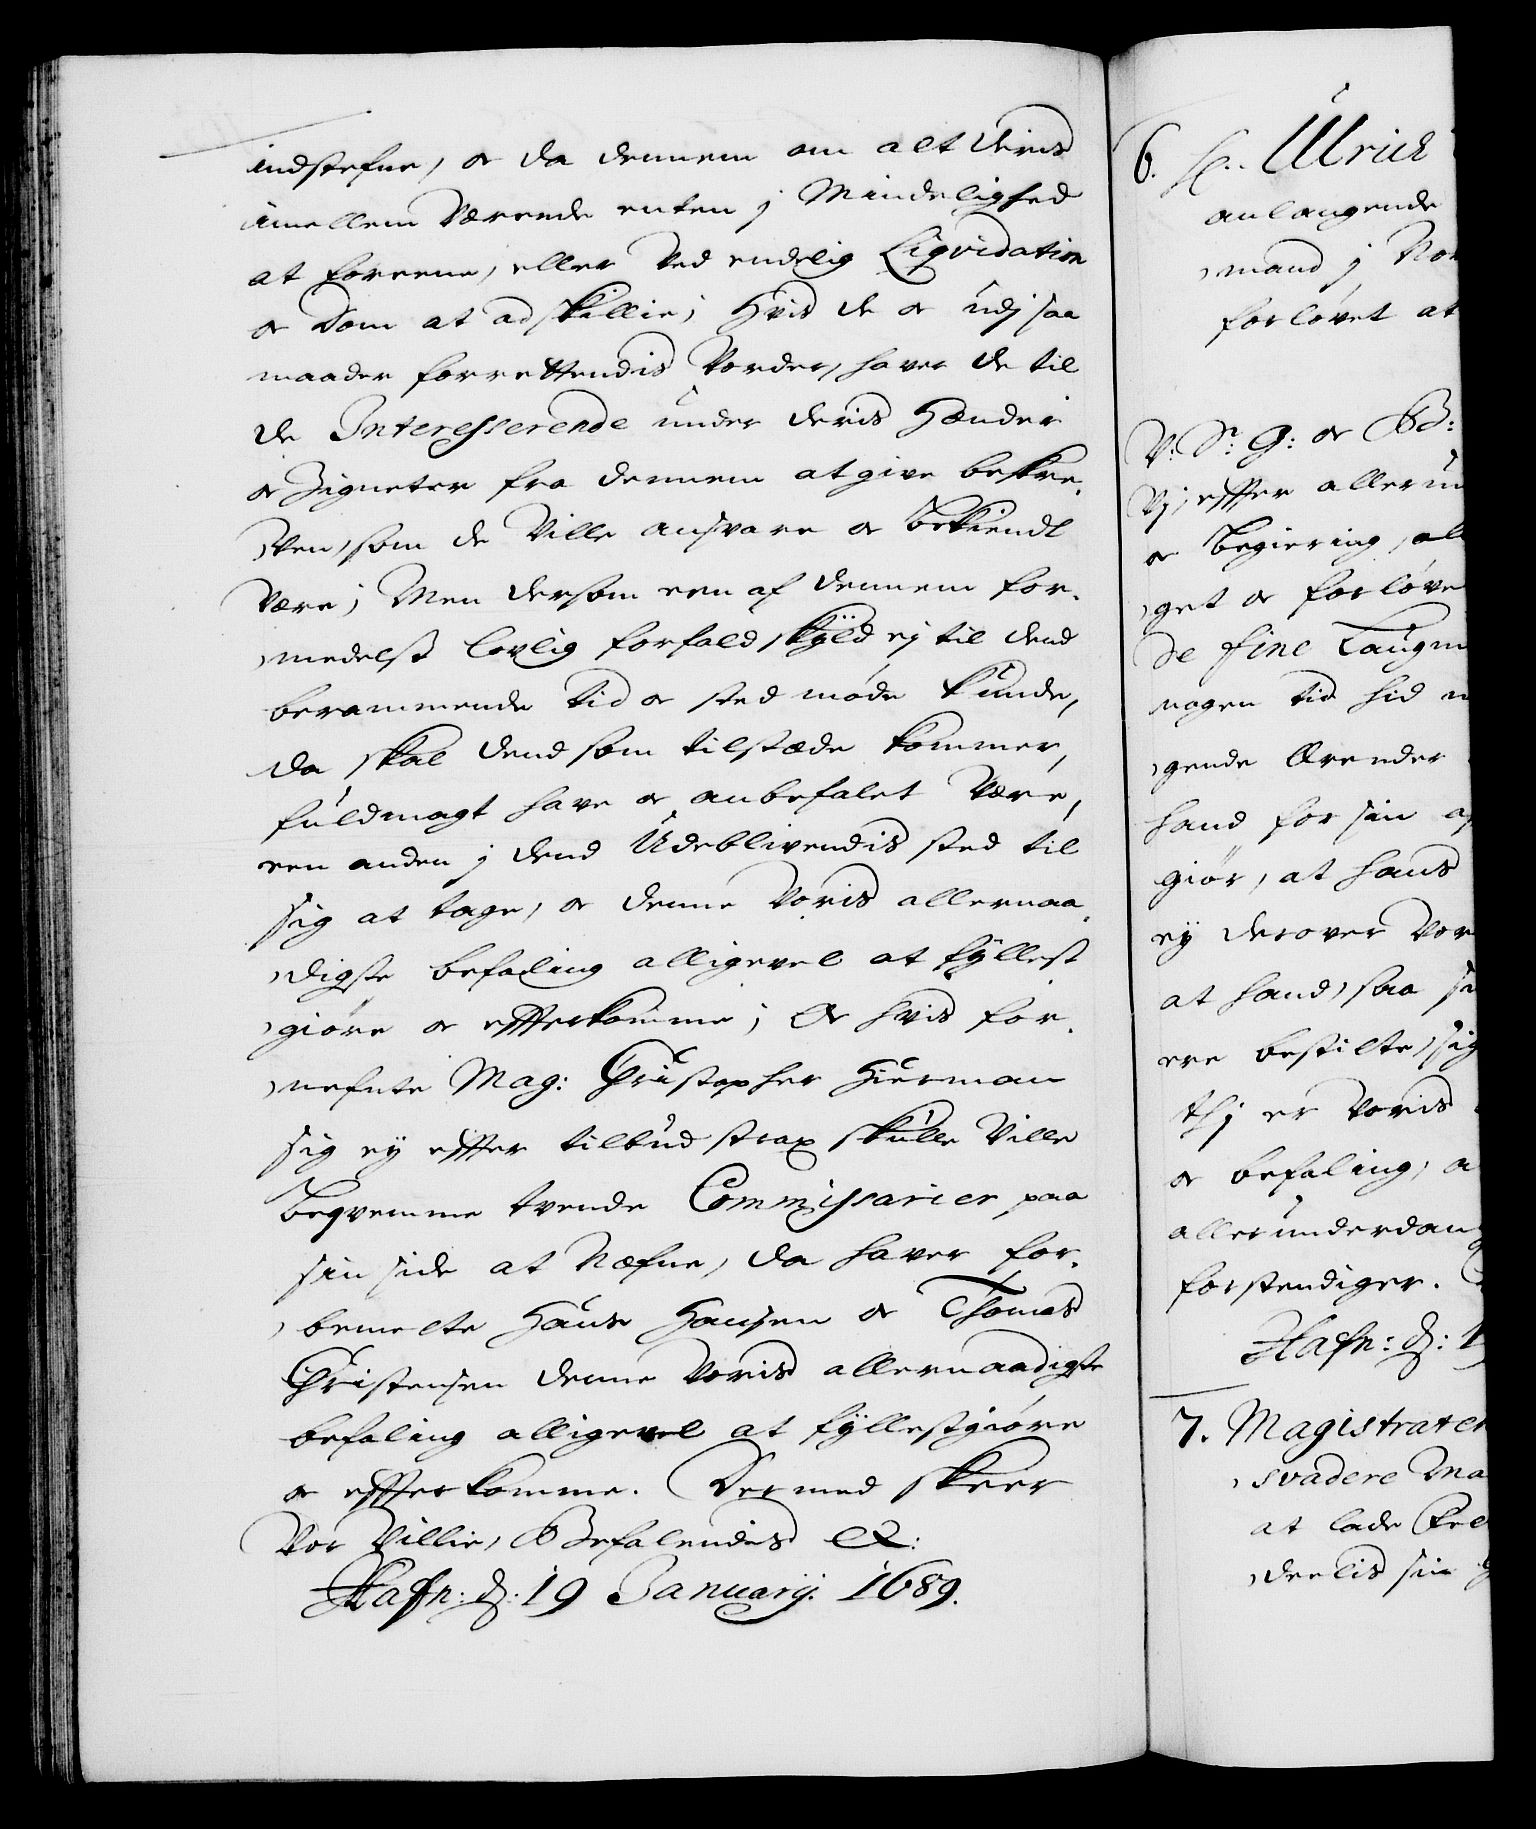 indstefne, or da dennem om alt deris
imellem Værende enten j Mindelighed
at foreene, eller Ved endelig Liqvidation
or Dom at adskillie; Hvis de or udj saa
maader forrettendis Vorder, haver de til
de Interesserende under deris Hænder
or Zigneter fra dennem at give beskre,
ven, som de Ville ansvare or bekiendt
Være; Men dersom een af dennem for,
medelst lovlig forfald skyld ej til dend
berammende tid or sted møde kunde,
da skal dend som tilstæde kommer,
fuldmagt have or anbefalet Være,
een anden j dend Udeblivendis sted til
sig at tage, or denne Voris allernaa,
digste befaling alligevel at fyllest
giøre or effterkomme; Or hvis for,
nefnte Mag: Christopher Hierman
sig ey effter tilbud strax skulle Ville
beqvemme tvende Commissarier paa
sin side at Næfne, da haver for,
bemelte Hans Hansen or Thomas
Christensen denne Voris allernaadigste
befaling alligevel at fyllestgiøre
or effterkomme. Dermed skeer
Vor Villie, Befalendis &:
Hafn: d: 19 Januarij. 1689.
6. H.. Ulrich
anlangende
mand j Nor
forløvet at
V: Sr: G: or B:
Vj, effter allerun
or begiering, al
get or forløve
de fine Laugm
nogen tid hid
gende Ærender
hand for sin
giør, at hans
ey derover Vor
at hand, saa
ere bestilte, sig
thj er Voris
or befaling, a
allerunderdan
forstendiger.
Hafn: d: 1
7. Magistraten
svadere Ma
at lade
deelis sin